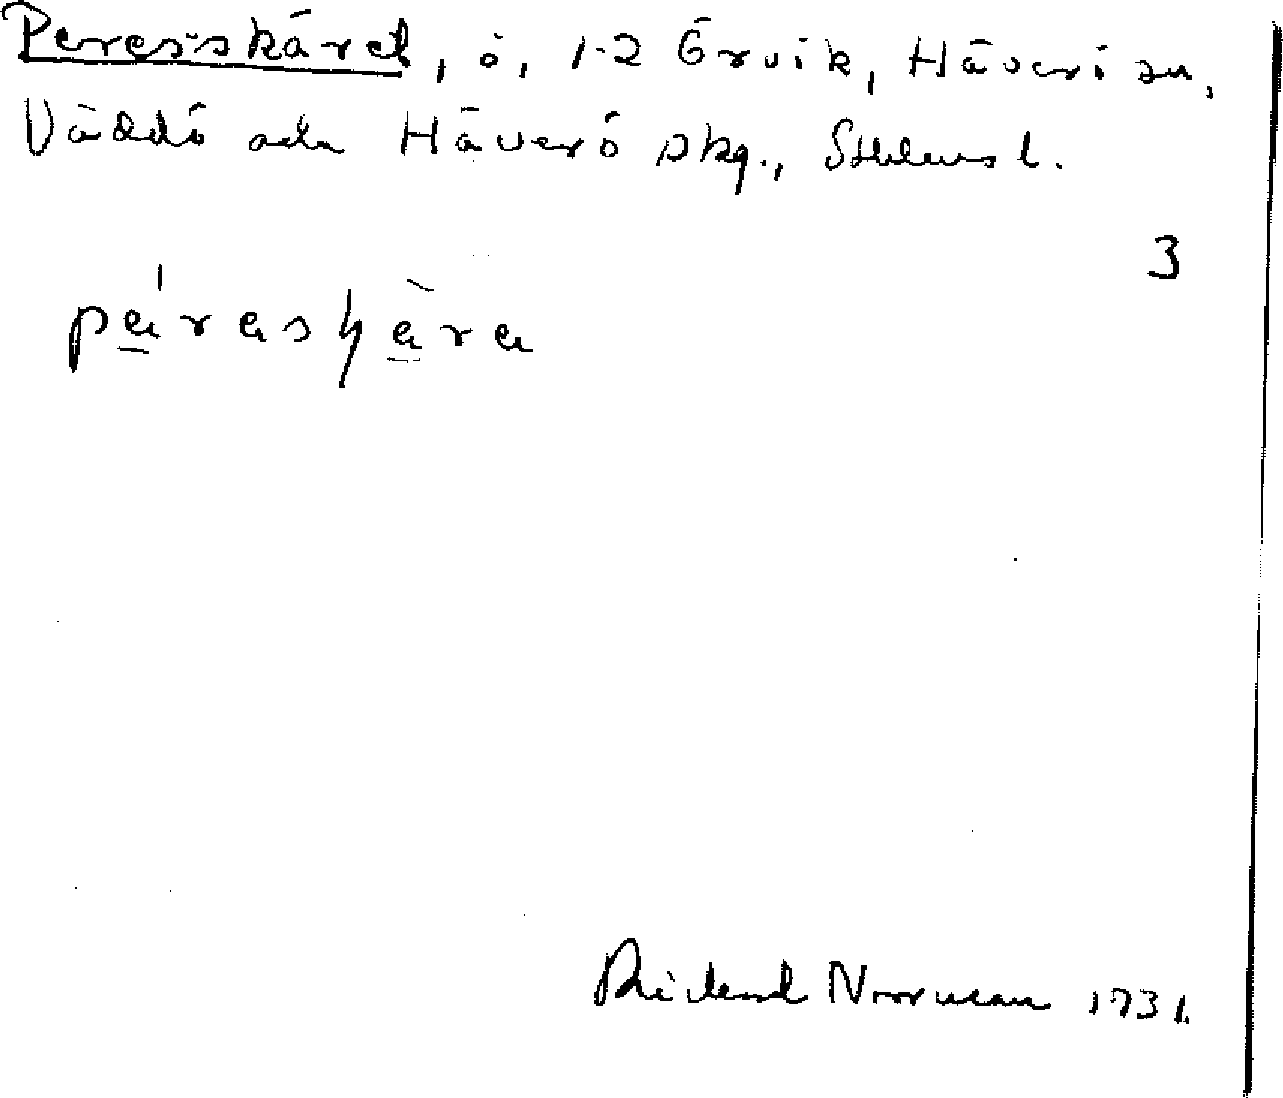 Persesskäret, ö, 1-2 Örvik, Häverö sn,
Väddö och Häverö skg., Sthlms l.
3
päraskära
Rickard Norrman 1931.